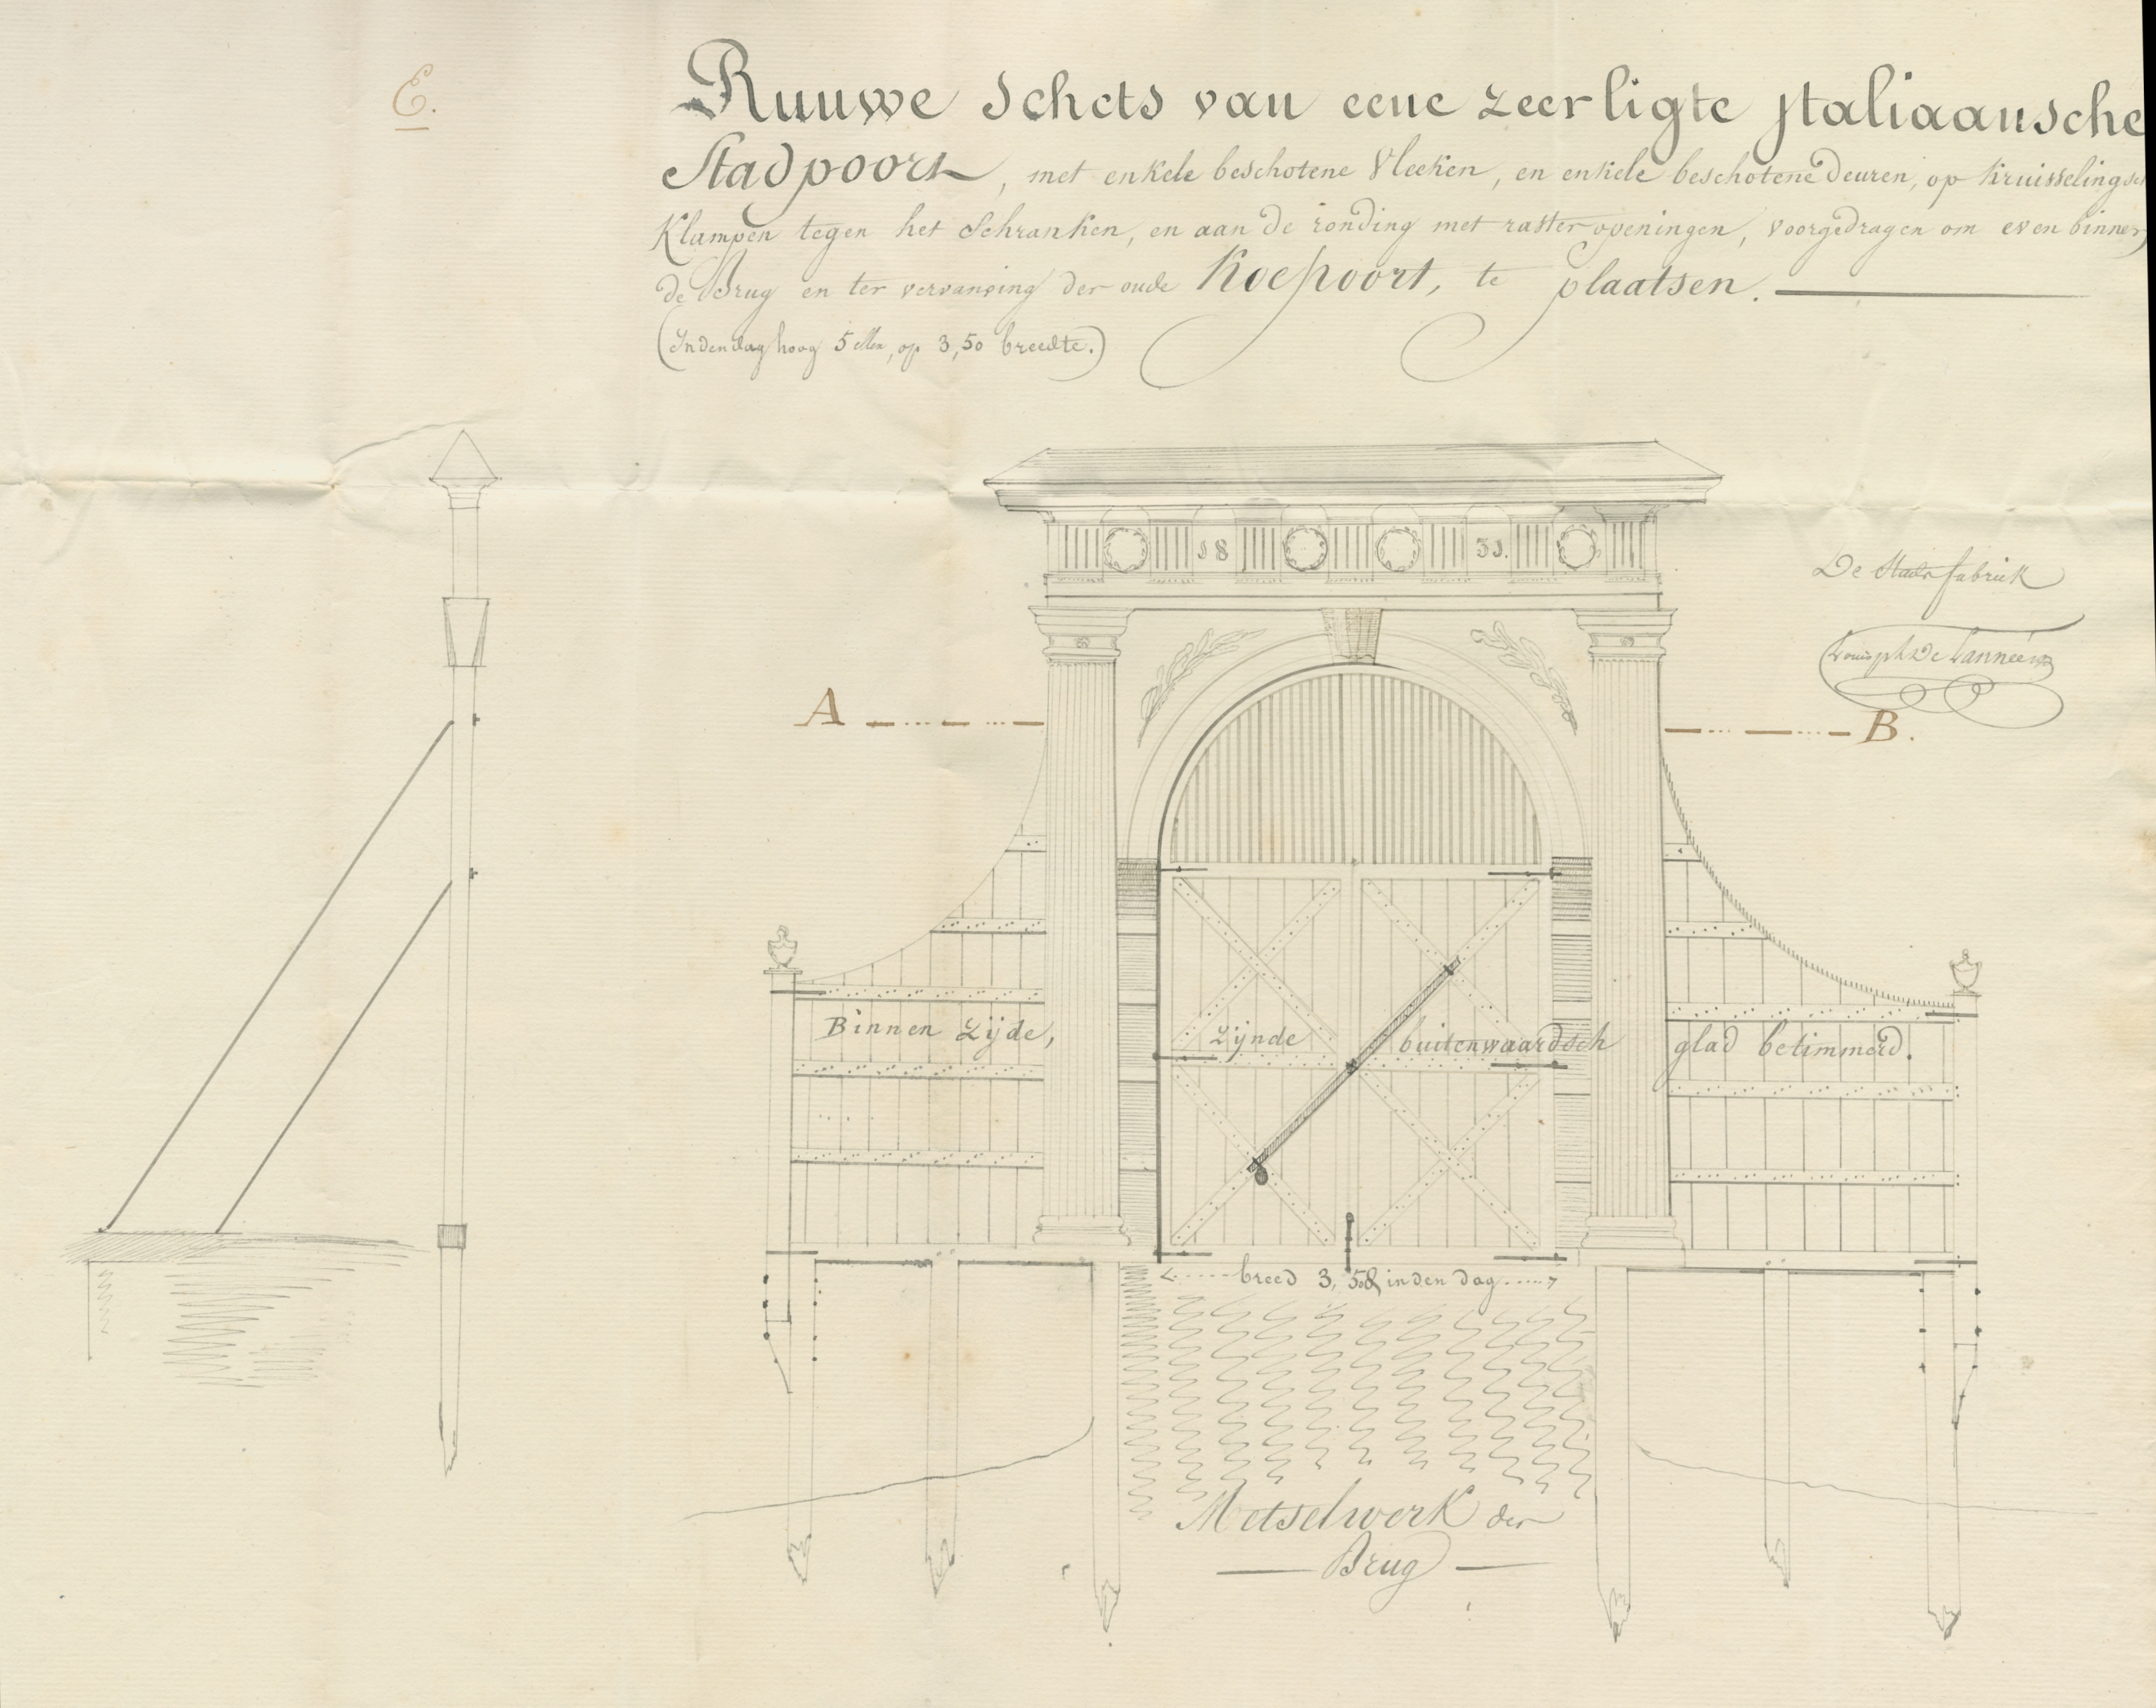 E.
Ruuwe Schets van eene zeer ligte Italiaansche
Stadpoort, met enkele beschotene Vleeken, en enkele beschotene deuren, op kruisselingsch
Klampen tegen het Schranken, en aan de ronding met raster openingen, voorgedragen om even binnen
de Brug en ter vervanging der oude Koepoort, te plaatsen.
(In den dag hoog 5 ellen, op 3,50 breedte.)
18 31.
De Stads fabriek
A B.
Binnen Zijde, zijnde buitenwaardsch glad betimmerd.
breed 3,50 in den dag
Metselwerk der
Brug